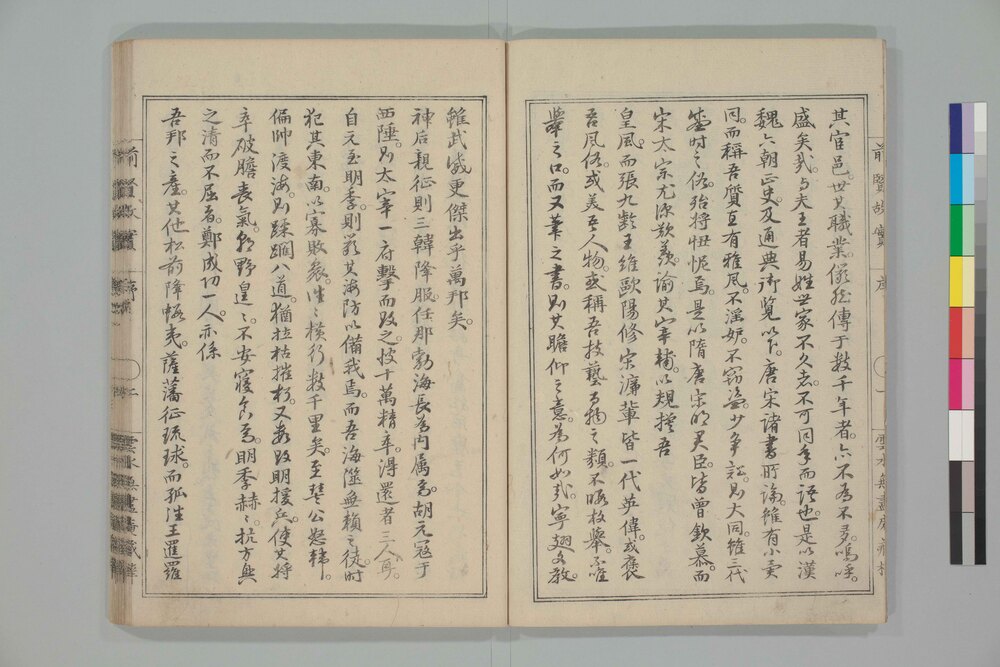 其官邑世其職業儼然傳于數千年者亦不為不多嗚呼
盛矣哉与夫王者易姓世家不久者不可同年而語也是以漢
魏六朝正史及通典御覽以下唐宋諸書所論雖有小異
同而稱吾質直有雅風不淫妒不窃盜少爭訟則大同雖三代
盛時之俗殆將忸怩焉是以隋唐宋明君臣皆曾欽慕而
宋太宗尤深歎羨諭其宰輔以規摸吾
皇風而張九齡王維歐陽修宋濂輩皆一代英偉或褒
吾風俗或美吾人物或稱吾技藝百物之類不暇枚舉不唯
舉之口而又筆之書則其瞻仰之意為何如哉寧翅文教
雖武威更傑出乎萬邦矣
神后親征則三韓降服任那渤海長為内属焉胡元寇于
西陲則太宰一府擊而敗之姣十萬精卒得還者三人耳
自元至明季則嚴其海防以備我焉而吾海濱無頼之徒時
犯其東南以寡敗衆往々横行數千里矣至豐公怒韓
偏帥渡海則蹂躙八道猶拉枯摧朽又数敗明援兵使其将
卒破膽喪氣朝野皇々不安寝食焉明季赫々抗方興
之清而不屈者鄭成功一人亦係
吾邦之產其他松前降蝦夷薩藩征琉球而孤注王暹羅
前賢故實
序